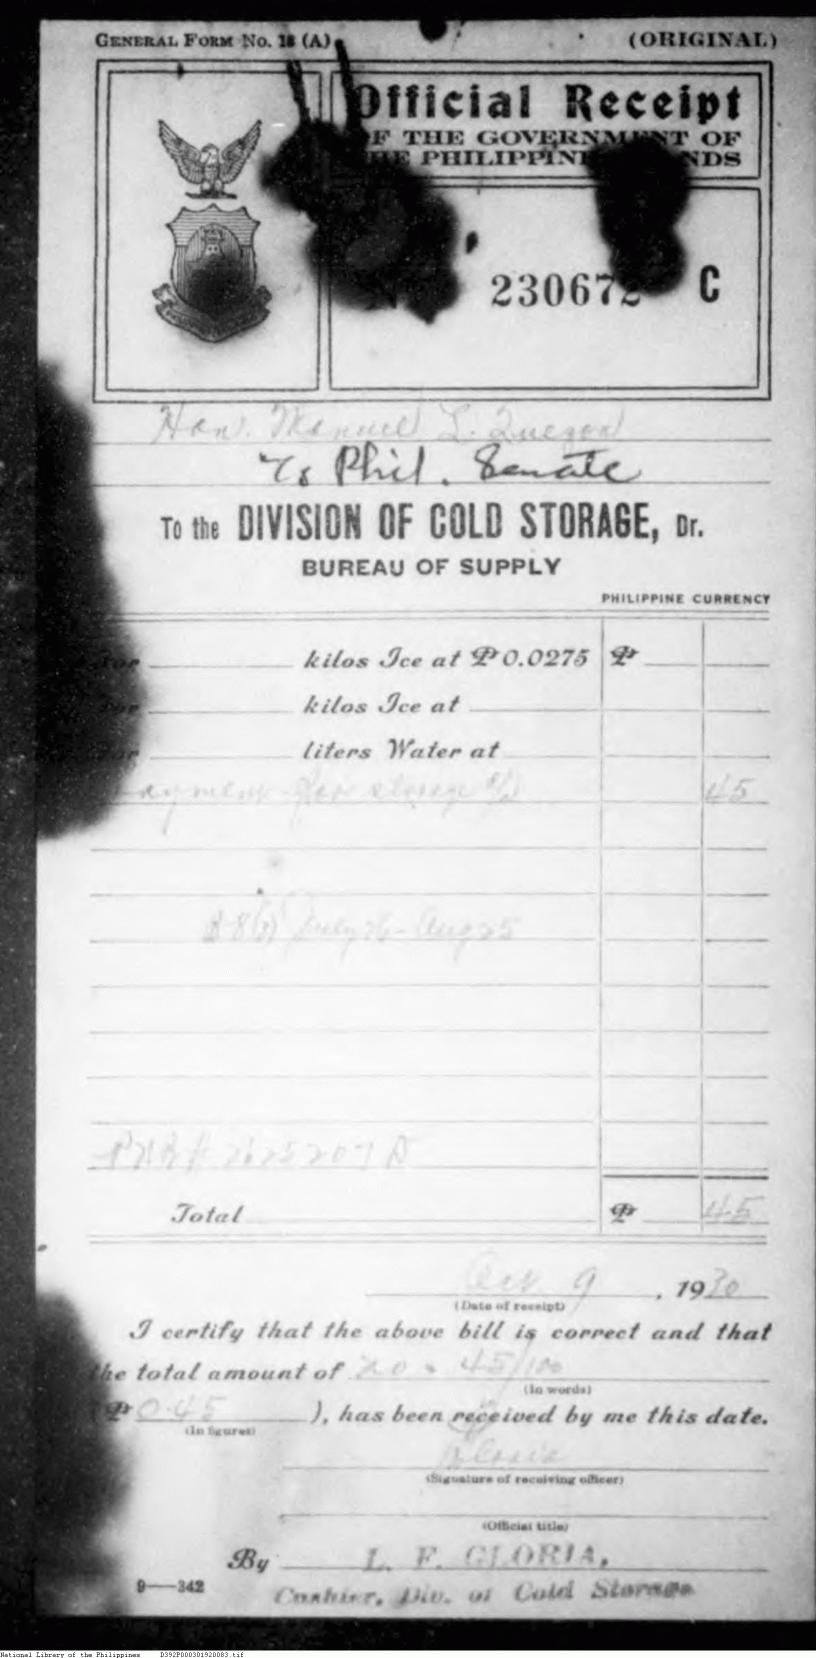 GENERAL FORM No. 18 (A)
(ORIGINAL)
Official Receipt
OF THE GOVERNMENT OF
THE PHILIPPINE ISLANDS
No. 230672 C
Hon. Manuel L. Quezon
c/o Phil. Senate
To the DIVISION OF COLD STORAGE, Dr.
BUREAU OF SUPPLY
PHILIPPINE CURRENCY
For kilos Ice at ₱0.0275 ₱
For kilos Ice at
For liters Water at
Payment for storage 45
July 26 - Aug 25
2625207 D
Total ₱ 45
Oct. 9, 1930
(Date of receipt)
I certify that the above bill is correct and that
the total amount of 45/100
(In words)
(₱ 0.45 ), has been received by me this date.
(In figures)
Gloria
(Signature of receiving officer)
(Official title)
By L. F. GLORIA,
9—342
Cashier, Div. of Cold Storage
National Library of the Philippines D392P000301920083.tif